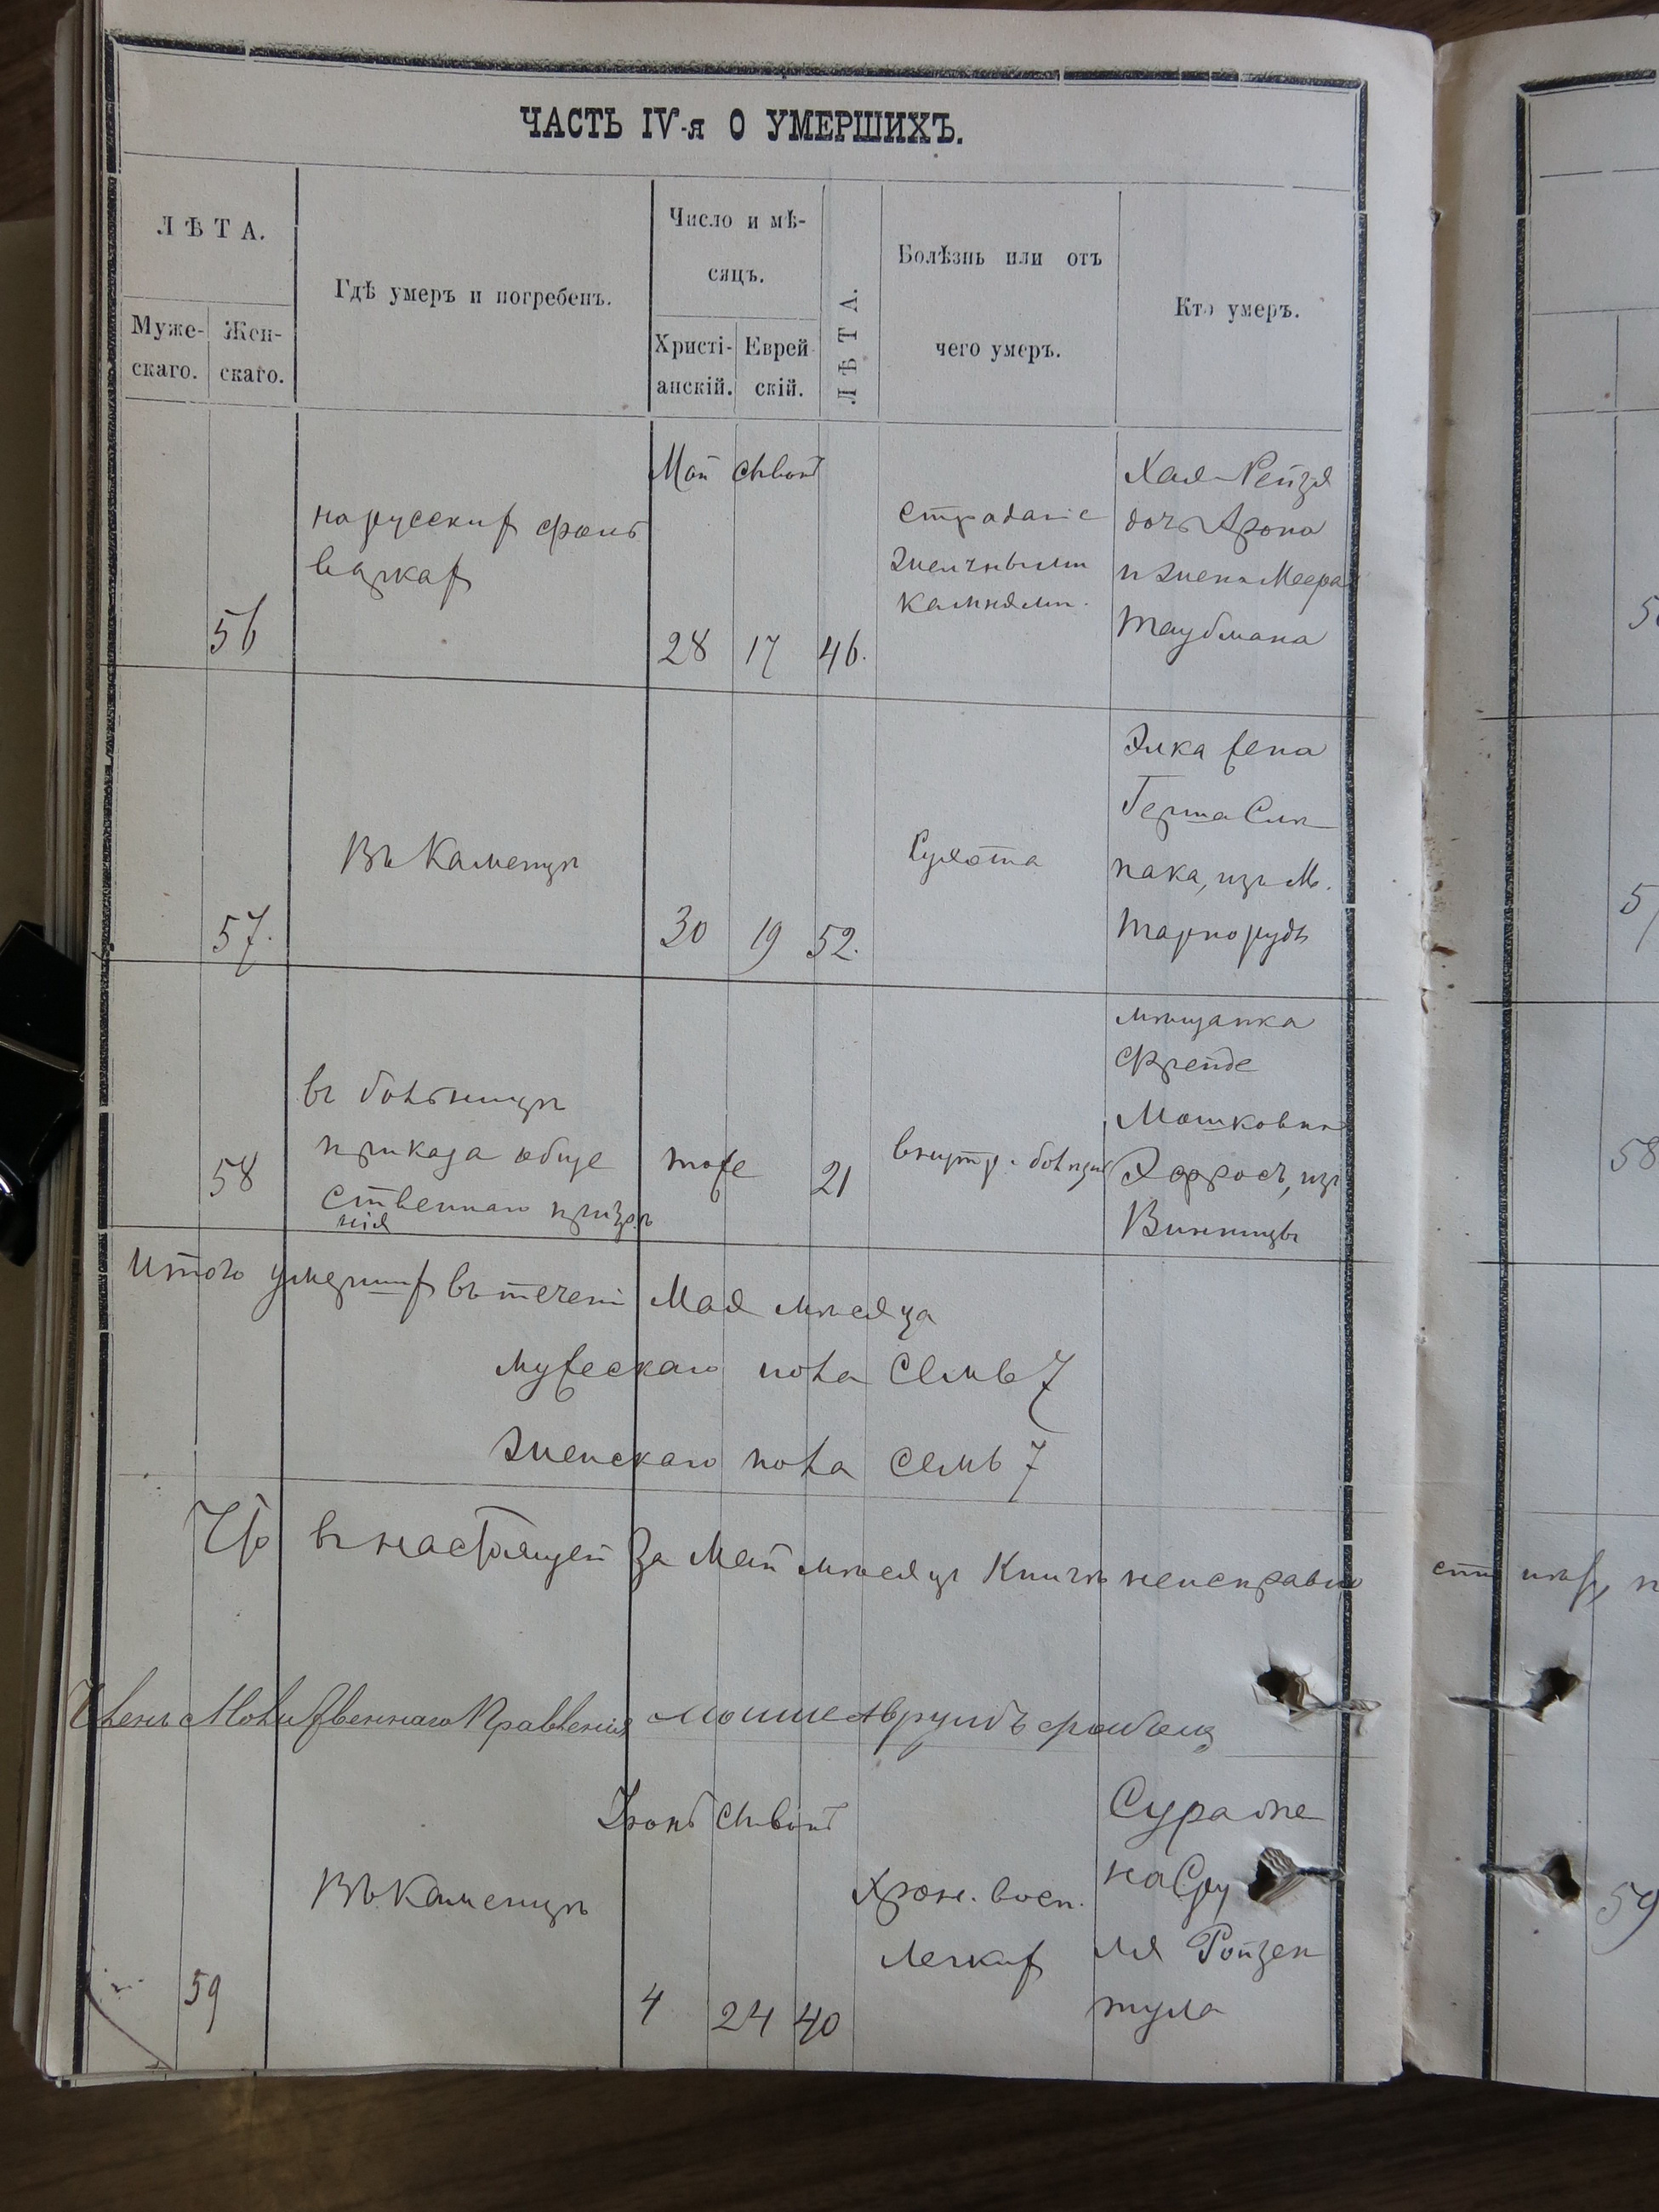 ЧАСТЬ IV-я О УМЕРШИХЪ.
ЛѢТА.
Муже-
скаго.
Жен-
скаго.
Гдѣ умеръ и погребенъ.
Число и мѣ-
сяцъ.
Христі-
анскій.
Еврей
скій.
ЛѢТА.
Болѣзнь или отъ
чего умеръ.
Кто умеръ.
56
на русскихъ фоль
варкахъ
Май
28
17
46.
страданіе
желчными
камнями.
Хая-Рейзя
дочь Арона
и жена Меера
Таубмана
57.
Въ Каменцѣ
30
19
52.
Сухота
Элка жена
Герша Син
пака, изъ М.
Тарноруды
58
въ больницѣ
приказа обще
ственнаго призрѣ
нія
тоже
21
внутр. болѣзнь
мѣщанка
Фрейде
Мошковна
изъ
Винницы
Итого умершихъ въ теченіи Мая мѣсяца
мужескаго пола семь 7
женскаго пола семь 7
Что въ настоящей за Май мѣсяцъ Книгѣ неисправно
стей нѣтъ,
Членъ Молитвеннаго Правленія
59
Въ Каменцѣ
Іюнь
4
24
40
Хрон. восп.
легкихъ
Сура же
на Сру
ля Ройзен
тула
58
59